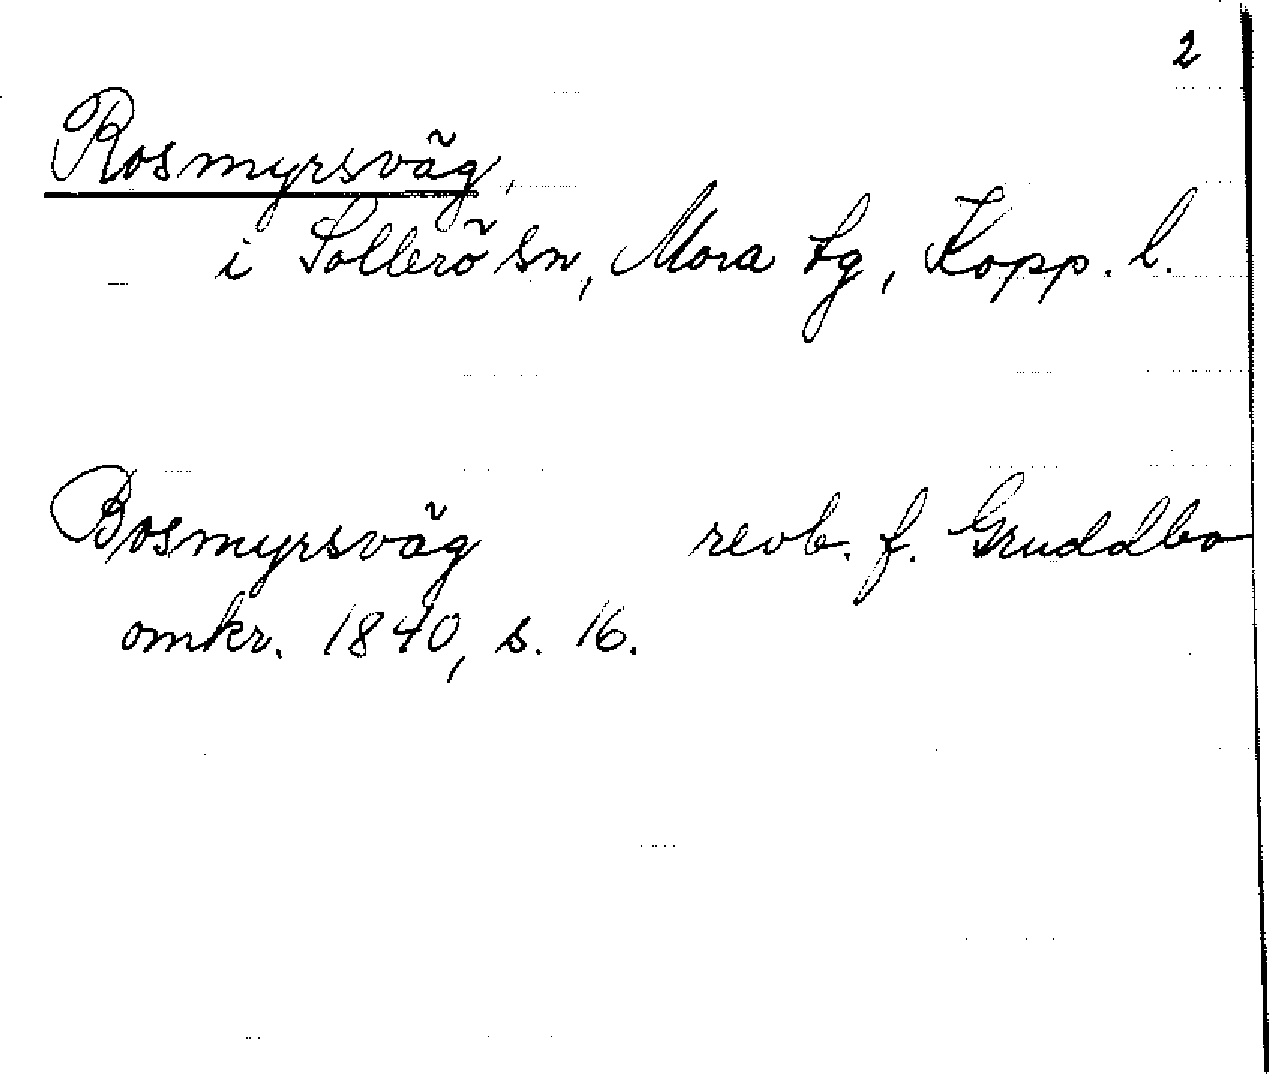 2
Rosmyrsväg,
i Sollerö sn, Mora tg, Kopp. l.
Bosmyrsväg revb. f. Gruddbo
omkr. 1840, s. 16.